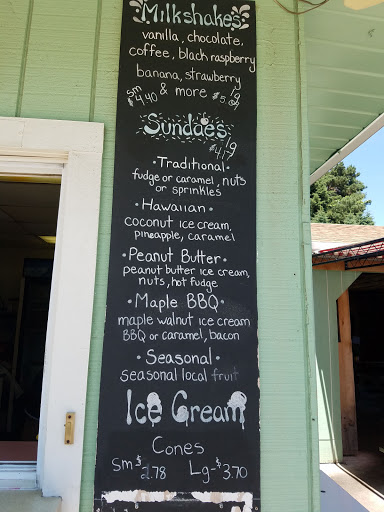 Milkshakes
vanilla, chocolate,
coffee, black raspberry
banana, strawberry
& more
sm lg
$4.40
Sundaes
·Traditional·
fudge or caramel, nuts
or sprinkles
·Hawaiian·
coconut ice cream,
pineapple, caramel
·Peanut Butter·
peanut butter ice cream,
nuts, hot fudge
·Maple BBQ·
maple walnut ice cream
BBQ or caramel, bacon
·Seasonal·
seasonal local fruit
Ice Cream
Cones
Sm $2.78 Lg-$3.70